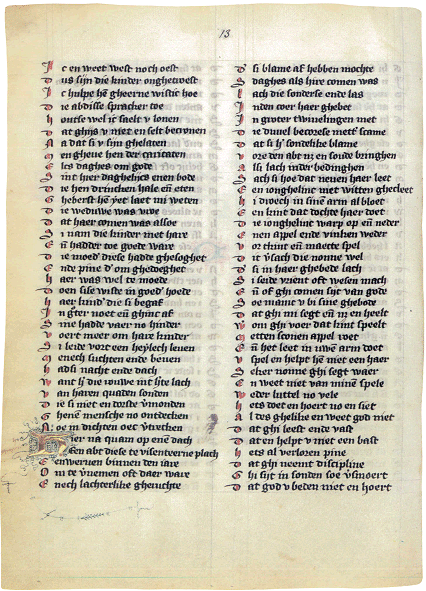 13
Ic en weet west noch oest
Dus sijn die kinder onghetroest
Ic hulpe hē gheerne wistic hoe
Die abdisse spracker toe
Hontse wel ic saelt v lonen
Dat ghijs v niet en selt becronen
Na dat si v sijn ghelaten
Gheue hen der caritaten
Elcs daghes om gode
Sint hier daghelijcs enen bode
Die hen drincken hale eñ eten
Gheberst hē yet laet mi weten
Die weduwe was vroe
Dat haer comen was alsoe
Si nam die kinder met hare
Eñ hadder toe goede ware
Die moeder diese hadde ghesoghet
Ende pine d' om ghedoghet
Haer was wel te moede
Doen sise wiste in goed' hoede
Haer kind' die si begaf
In groter noet eñ ghinc af
Sine hadde vaer no hinder
Voert meer om hare kinder
Si leide vort een heylech leuen
Menech suchten ende beuen
Hadsi nacht ende dach
Want hr die rouwe int hte lach
Van haren quaden sonden
Die si niet en dorste vmonden
Ghenen mensche no ontdecken
No in dichten oec vtrecken
Hier na quam op enē dach
Een abt diese te visenteerne plach
Eenwerven binnen den iare
Om te vnemen oft daer ware
Enech lachterlike gheruchte
Daer si blame af hebben mochte
Daghes als hire comen was
Lach die sonderse ende las
Inden coer haer ghebet
In groter twiuelingen met
Die duuel becorese mett scame
Dat si h' sondelike blame
Vore den abt nz en soude bringhen
Alsi lach inder bedinghen
Sach si hoe dat neuen haer leet
Een ionghelinc met witten ghecleet
Hi droech in sinē arm al bloet
Een kint dat dochte haer doet
Die ionghelinc warp op eñ neder
Enen appel ende vincken weder
Vor tkint eñ maecte spel
Dit vsach die nonne wel
Daer si in haer ghebede lach
Si seide vrient oft wesen mach
Eñ of ghi comen sijt van gode
Soe manic v bi sine ghebode
Dat ghi mi segt eñ nz en heelt
Waer om ghi voer dat kint speelt
Metten sconen appel roet
Eñ het leet in uwē arm doet
V spel en helpt hē niet een haer
Seker nonne ghi segt waer
En weet niet van minē spele
Weder luttel no vele
Hets doet en hoert no en siet
Al des ghelike en weet god niet
Dat ghi leest ende vast
Dat en helpt v niet een bast
Hets al verloren pine
Dat ghi neemt discipline
Ghi sijt in sonden soe vsmoert
Dat god v beden niet en hoert